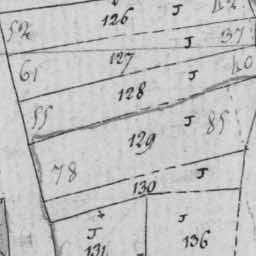 126 J 42
52
J 37
127
61 J 40
128
55 J 85
129
78
130 J
J J
131 136